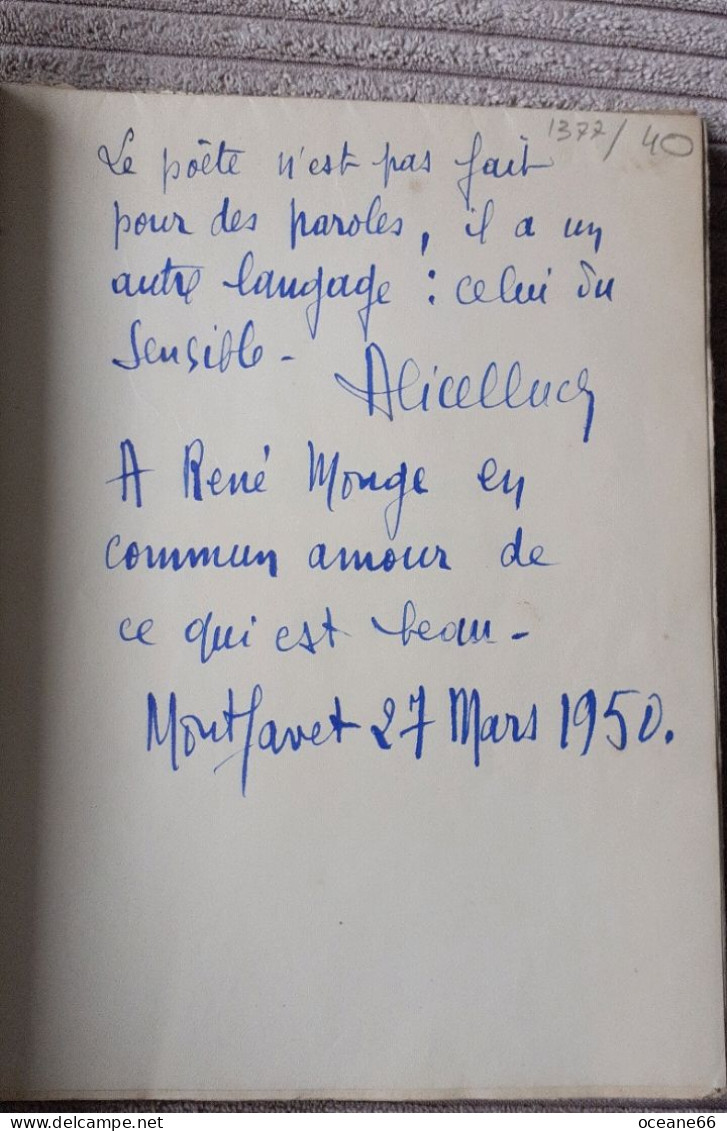 1377/40
Le poëte n'est pas fait
pour des paroles, il a un
autre langage : celui du
Sensible -
A René Monge en
commun amour de
ce qui est beau -
Montfavet 27 Mars 1950.
oceane66